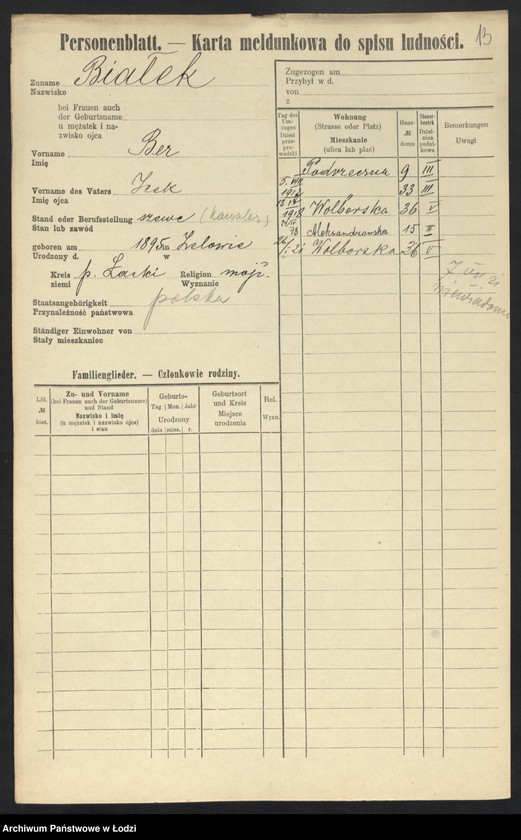 13
Personenblatt. — Karta meldunkowa do spisu ludności.
Zuname Białek
Nazwisko
bei Frauen auch
der Geburtsname
u mężatek i na-
zwisko ojca
Vorname Ber
Imię
Vorname des Vaters Icek
Imię ojca
Stand oder Berufsstellung szewc (kawaler)
Stan lub zawód
geboren am 1895 r. Zelowie
Urodzony d. w
Kreis p. Łaski Religion mojż.
ziemi Wyznanie
Staatsangehörigkeit polska
Przynależność państwowa
Ständiger Einwohner von
Stały mieszkaniec
Zugezogen am
Przybył w d.
von
z
Tag des Um-zuges Dzień prze-prowadzki
Wohnung (Strasse oder Platz) Mieszkanie (ulica lub plac)
Haus-№ domu
Steuer-bezirk Dzielnica podatkowa
Bemerkungen Uwagi
Podrzeczna 9 III
5. VIII 33 III
1918 Wolborska 36 V
Aleksandrowska 15 III
Wolborska 36 V
niewiadomo
Familienglieder. — Członkowie rodziny.
Lfd. № bież.
Zu- und Vorname (bei Frauen auch der Geburtsname) und Stand Nazwisko i imię (u mężatek i nazwisko ojca) i stan
Geburts- Tag Mon. Jahr Urodzony dnia mies. r.
Geburtsort und Kreis Miejsce urodzenia
Rel. Wyzn.
Archiwum Państwowe w Łodzi